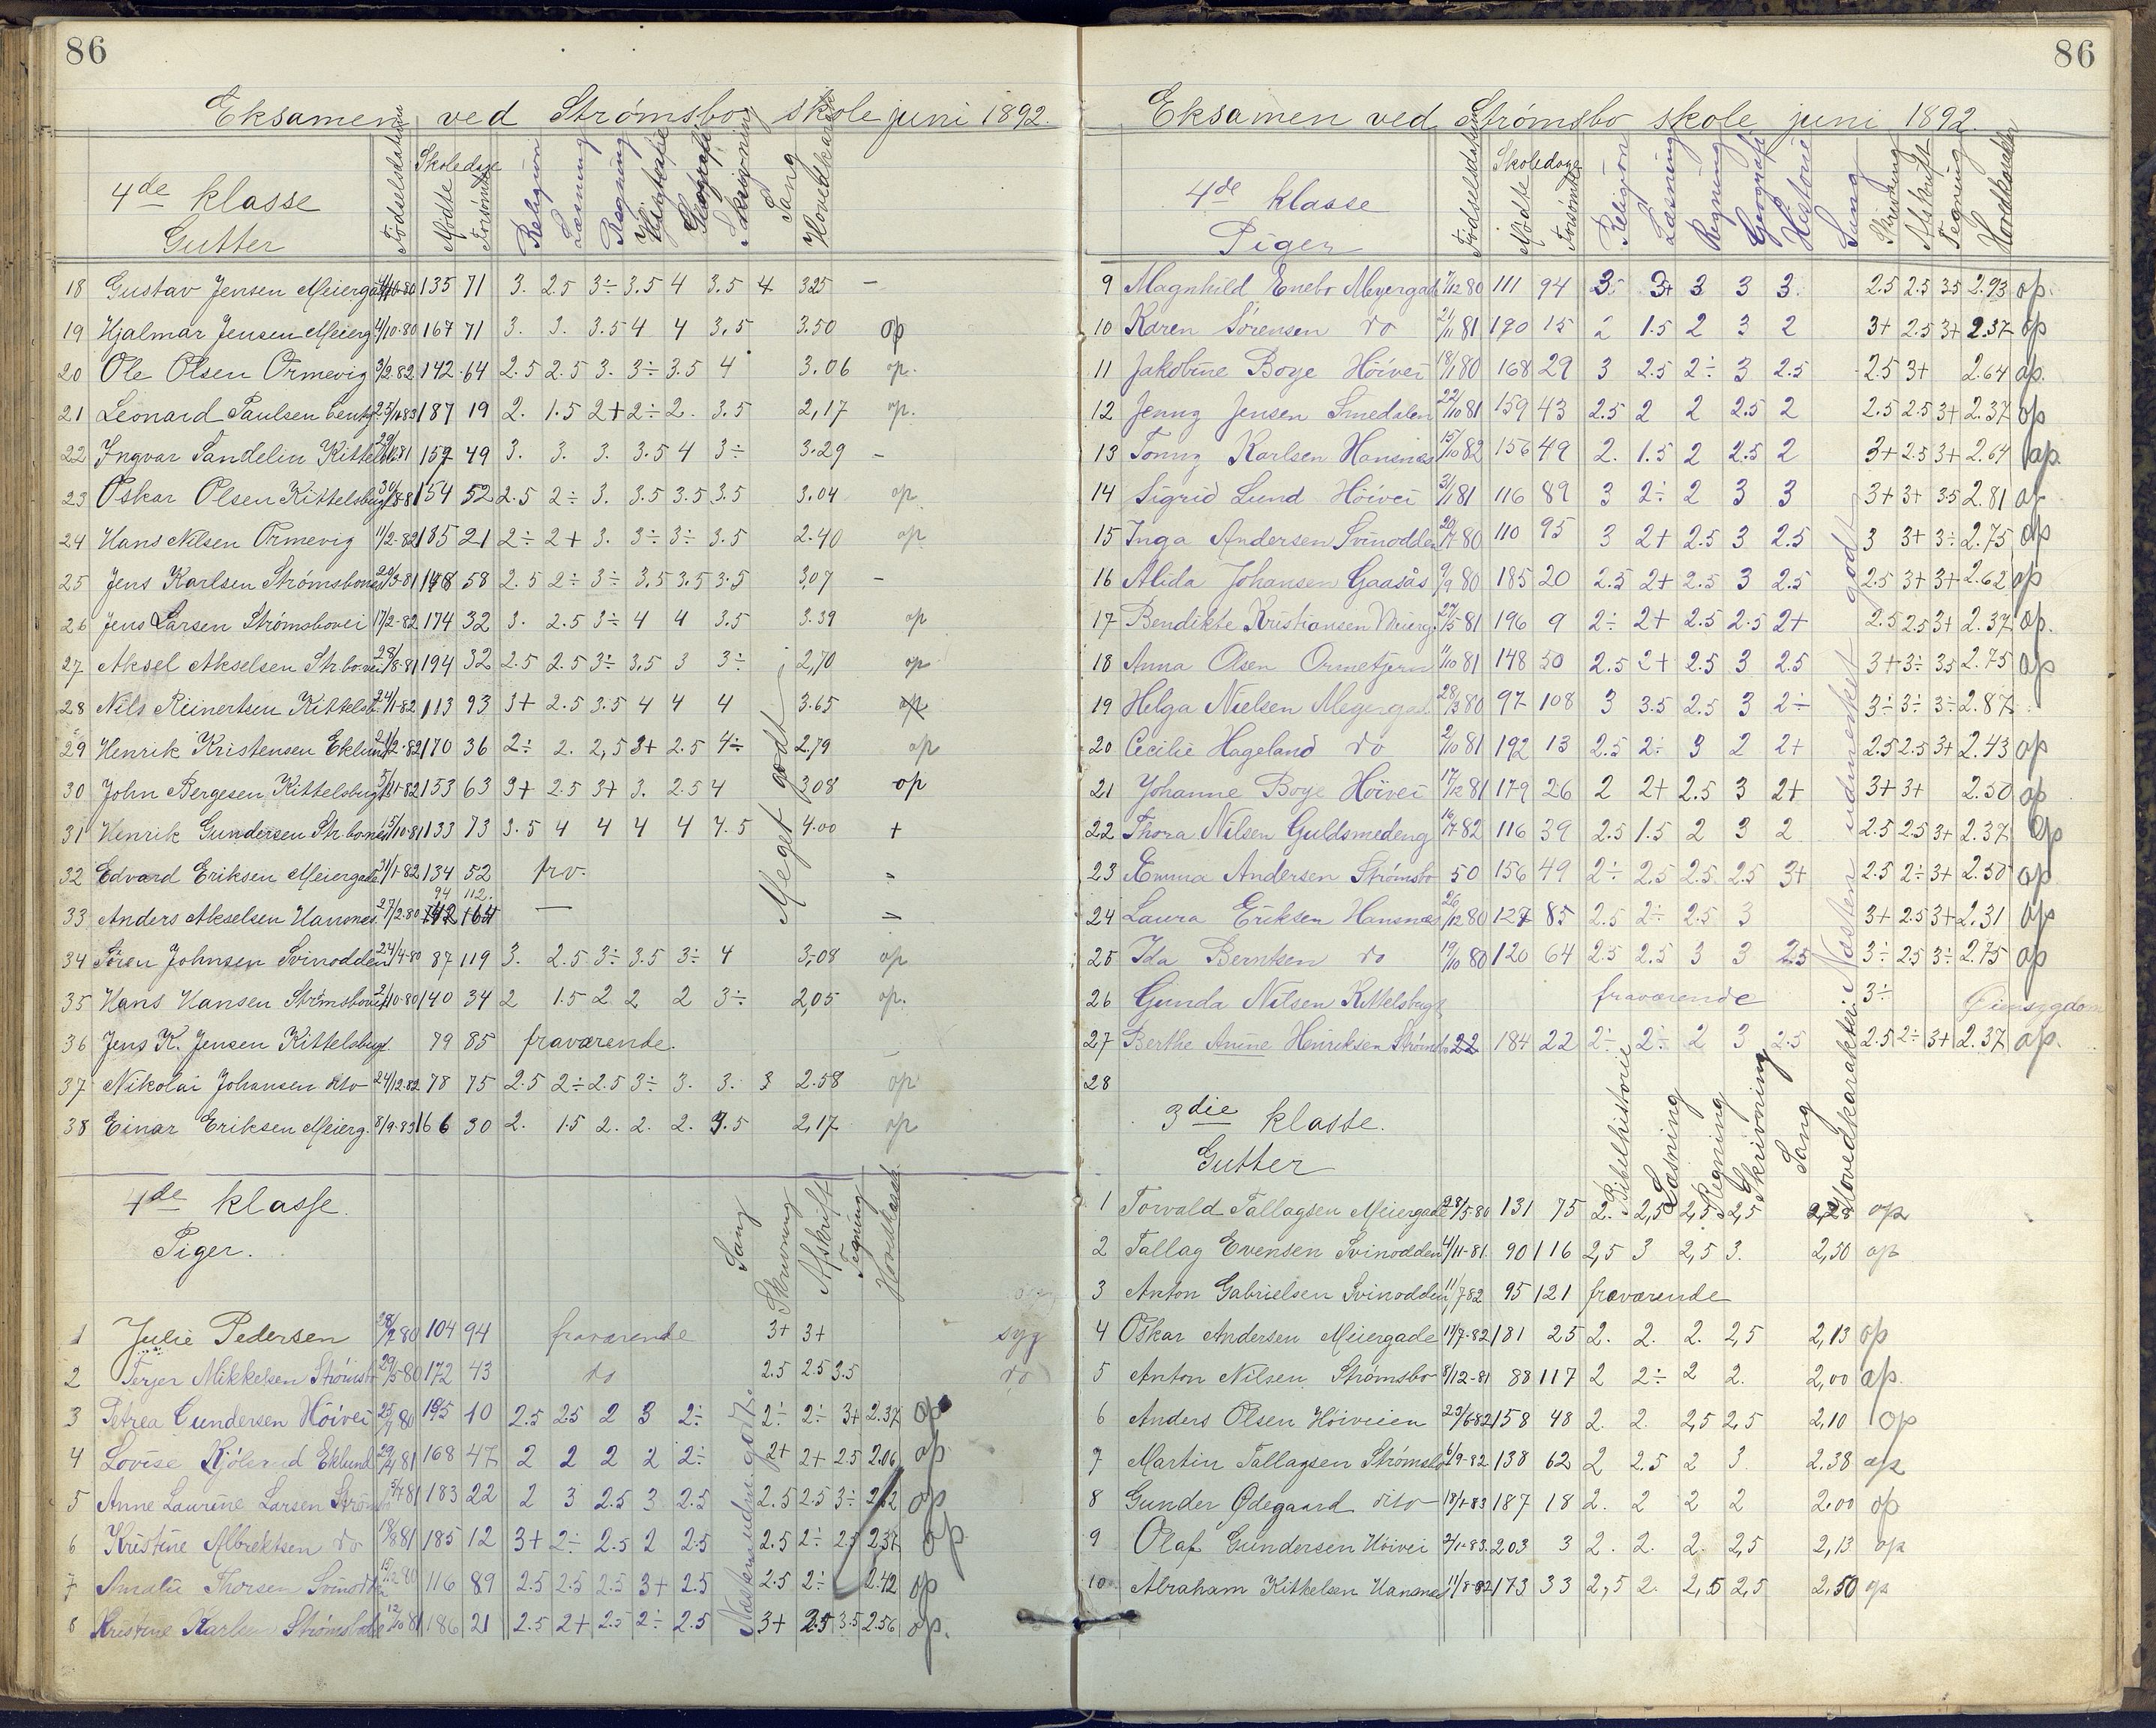 86
Eksamen ved Strømsbo skole juni 1892.
4de klasse
Gutter
Fødselsdatum Skoledage Mødte Forsømte Religion Læsning Regning Geografi Skrivning Sang Hovedkarakt
18 Gustav Jensen Meiergade 135 71 3. 2.5 3÷ 3.5 4 3.5 4 3.25 –
19 Hjalmar Jensen Meierg 4/10-80 167 71 3. 3. 3.5 4 4 3.5 3.50 op
20 Ole Olsen Ormevig 3/2.82 142 64 2.5 2.5 3. 3÷ 3.5 4 3.06 op.
21 Leonard Paulsen 187 19 2. 1.5 2+ 2÷ 2. 3.5 2,17 op.
22 Ingvar Sandelin Kittelsb 157 49 3. 3. 3. 3.5 4 3÷ 3.29 –
23 Oskar Olsen Kittelsbugt 154 52 2.5 2÷ 3. 3.5 3.5 3.5 3.04 op.
24 Hans Nilsen Ormevig 11/2-82 185 21 2÷ 2+ 3. 3÷ 3÷ 3.5 2.40 op
25 Jens Karlsen Strømsbones 148 58 2.5 2÷ 3÷ 3.5 3.5 3.5 3,07 –
26 Jens Larsen Strømsbovei 17/2-82 174 32 3. 2.5 3÷ 4 4 3.5 3.39 op
27 Aksel Akselsen Str.bovei 28/8-81 194 32 2.5 2.5 3÷ 3.5 3 3÷ 2,70 op
28 Nils Reinertsen Kittelsb 24/1-82 113 93 3+ 2.5 3.5 4 4 4 3.65 op
29 Henrik Kristensen Eklund 170 36 2÷ 2. 2,5 3+ 2.5 4÷ 2.79 op
30 John Bergesen Kittelsbugt 153 63 3+ 2.5 3+ 3. 2.5 4 3.08 op
31 Henrik Gundersen Str.bones 15/10-81 133 73 3.5 4 4 4 4 4.5 4.00 +
32 Edvard Eriksen Meiergade 31/1-82 134 52 frv. "
94 112.
33 Anders Akselsen Hansnes 27/2-80 142 64 — "
34 Søren Johnsen Svinodden 24/4-80 87 119 3. 2.5 3÷ 3.5 3÷ 4 3,08 op
35 Hans Hansen Strømsbovei 140 34 2 1.5 2 2 2 3÷ 2,05 op.
36 Jens K. Jensen Kittelsbugt 79 85 fraværende. –
37 Nikolai Johansen dto 24/12.82 78 75 2.5 2÷ 2.5 3÷ 3. 3. 3 2.58 op
38 Einar Eriksen Meierg. 8/9-83 166 30 2. 1.5 2. 2. 2. 3.5 2,17 op
Meget godt
4de klasse.
Piger.
Sang Skrivning Afskrift Tegning Hovedkarakt
1 Julie Pedersen 104 94 fraværende 3+ 3+ syg
2 Terjer Mikkelsen Strømsb 29/5 80 172 43 do 2.5 2.5 3.5 do
3 Petrea Gundersen Høivei 195 10 2.5 2.5 2 3 2÷ 2÷ 2÷ 3+ 2.37 op
4 Lovise Kjølsrud Eklund 168 47 2 2 2 2 2÷ 2+ 2+ 2.5 2.06 op
5 Anne Laurine Larsen Strømsb 183 22 2 3 2.5 3 2.5 2.5 2.5 3÷ op
6 Kristine Albrektsen do 185 12 3+ 2÷ 2.5 2 2.5 2.5 2÷ 2.5 2.37 op
7 Amalie Thorsen Svinodden 116 89 2.5 2.5 2.5 3+ 2.5 2.5 2÷ 2.42 op
8 Kristine Karlsen Strømsbo 12/10 81 186 21 2.5 2+ 2.5 2÷ 2.5 3+ 2.5 3.5 2.56 op.
86
Eksamen ved Strømsbo skole juni 1892.
4de klasse
Piger
Fødselsdatum Skoledage Mødte Forsømte Religion Læsning Regning Geografi Historie Sang Skrivning Afskrift Tegning Hovedkarakter
9 Magnhild Enebo Meyergad 7/12 80 111 94 3 3+ 3 3 3. 2.5 2.5 3.5 2.93 op.
10 Karen Sørensen do 21/11 81 190 15 2 1.5 2 3 2 3+ 2.5 3+ 2.37 op
11 Jakobine Boye Höivei 18/1 80 168 29 3 2.5 2÷ 3 2.5 2.5 3+ 2.64 op.
12 Jenny Jensen Smedalen 22/10 81 159 43 2.5 2 2 2.5 2 2.5 2.5 3+ 2.37 op
13 Tonny Karlsen Hansnæs 15/10 82 156 49 2. 1.5 2 2.5 2 3+ 2.5 3+ 2.64 op.
14 Sigrid Lund Höivei 31/1 81 116 89 3 2÷ 2 3 3 3+ 3+ 3.5 2.81 op
15 Inga Andersen Svinodden 110 95 3 2+ 2.5 3 2.5 3 3+ 3÷ 2.75 op
16 Alida Johansen Gaasås 9/9 80 185 20 2.5 2+ 2.5 3 2.5 2.5 3+ 3+ 2.62 op
17 Bendikte Kristiansen Meierg. 27/5 81 196 9 2÷ 2+ 2.5 2.5 2+ 2.5 2.5 3+ 2.37 op.
18 Anna Olsen Ormetjern 11/10 81 148 50 2.5 2+ 2.5 3 2.5 3+ 3÷ 3.5 2.75 op
19 Helga Nielsen Meyergad 28/3 80 97 108 3 3.5 2.5 3 2÷ 3÷ 3÷ 3÷ 2.87
20 Cecilie Hageland do 2/10 81 192 13 2.5 2÷ 3 2 2+ 2.5 2.5 3+ 2.43 op
21 Johanne Boye Höivei 17/12 81 179 26 2 2+ 2.5 3 2+ 3+ 3+ 2.50 op
22 Thora Nilsen Guldsmedeng 82 116 39 2.5 1.5 2 3 2 2.5 2.5 3+ 2.37 op
23 Emma Andersen Strømsbo 50 156 49 2÷ 2.5 2.5 2.5 3+ 2.5 2÷ 3+ 2.50 op
24 Laura Eriksen Hansnæs 26/12 80 127 85 2.5 2÷ 2.5 3 3+ 2.5 3+ 2.31 op
25 Ida Berntsen do 19/10 80 120 64 2.5 2.5 3 3 2.5 3÷ 2.5 3÷ 2.75 op
26 Gunda Nilsen Kittelsbugt fraværende 3÷ Øiensygdom
27 Berthe Anine Henriksen Strømsbo 22 184 22 2÷ 2÷ 2 3 2.5 2.5 2÷ 3+ 2.37 op.
28
Næsten udmerket godt
3die klasse.
Gutter
Bibelhistorie Læsning Regning Skrivning Sang Hovedkarakter
1 Torvald Tallagsen Meiergade 28/5-80 131 75 2. 2,5 2,5 2,5 2,28 op
2 Tallag Evensen Svinodden 4/11-81. 90 116 2,5 3 2,5 3. 2,50 op
3 Anton Gabrielsen Svinodden 11/7-82 95 121 fraværende
4 Oskar Andersen Meiergade 181 25 2. 2. 2. 2,5 2,13 op
5 Anton Nilsen Strømsbo 8/12-81 88 117 2 2÷ 2 2. 2,00 op.
6 Anders Olsen Høiveien 23/6-82 158 48 2. 2. 2,5 2,5 2,10 op
7 Martin Tallagsen Strømsbo 6/9-82 138 62 2 2.5 2 3 2.38 op
8 Gunder Ødegaard dito 18/1-83 187 18 2. 2 2 2 2.00 op
9 Olaf Gundersen Høivei 203 3 2. 2. 2. 2,5 2,13 op
10. Abraham Kittelsen Hansnæs 11/8-82 173 33 2,5 2. 2,5 2,5 2,50 op